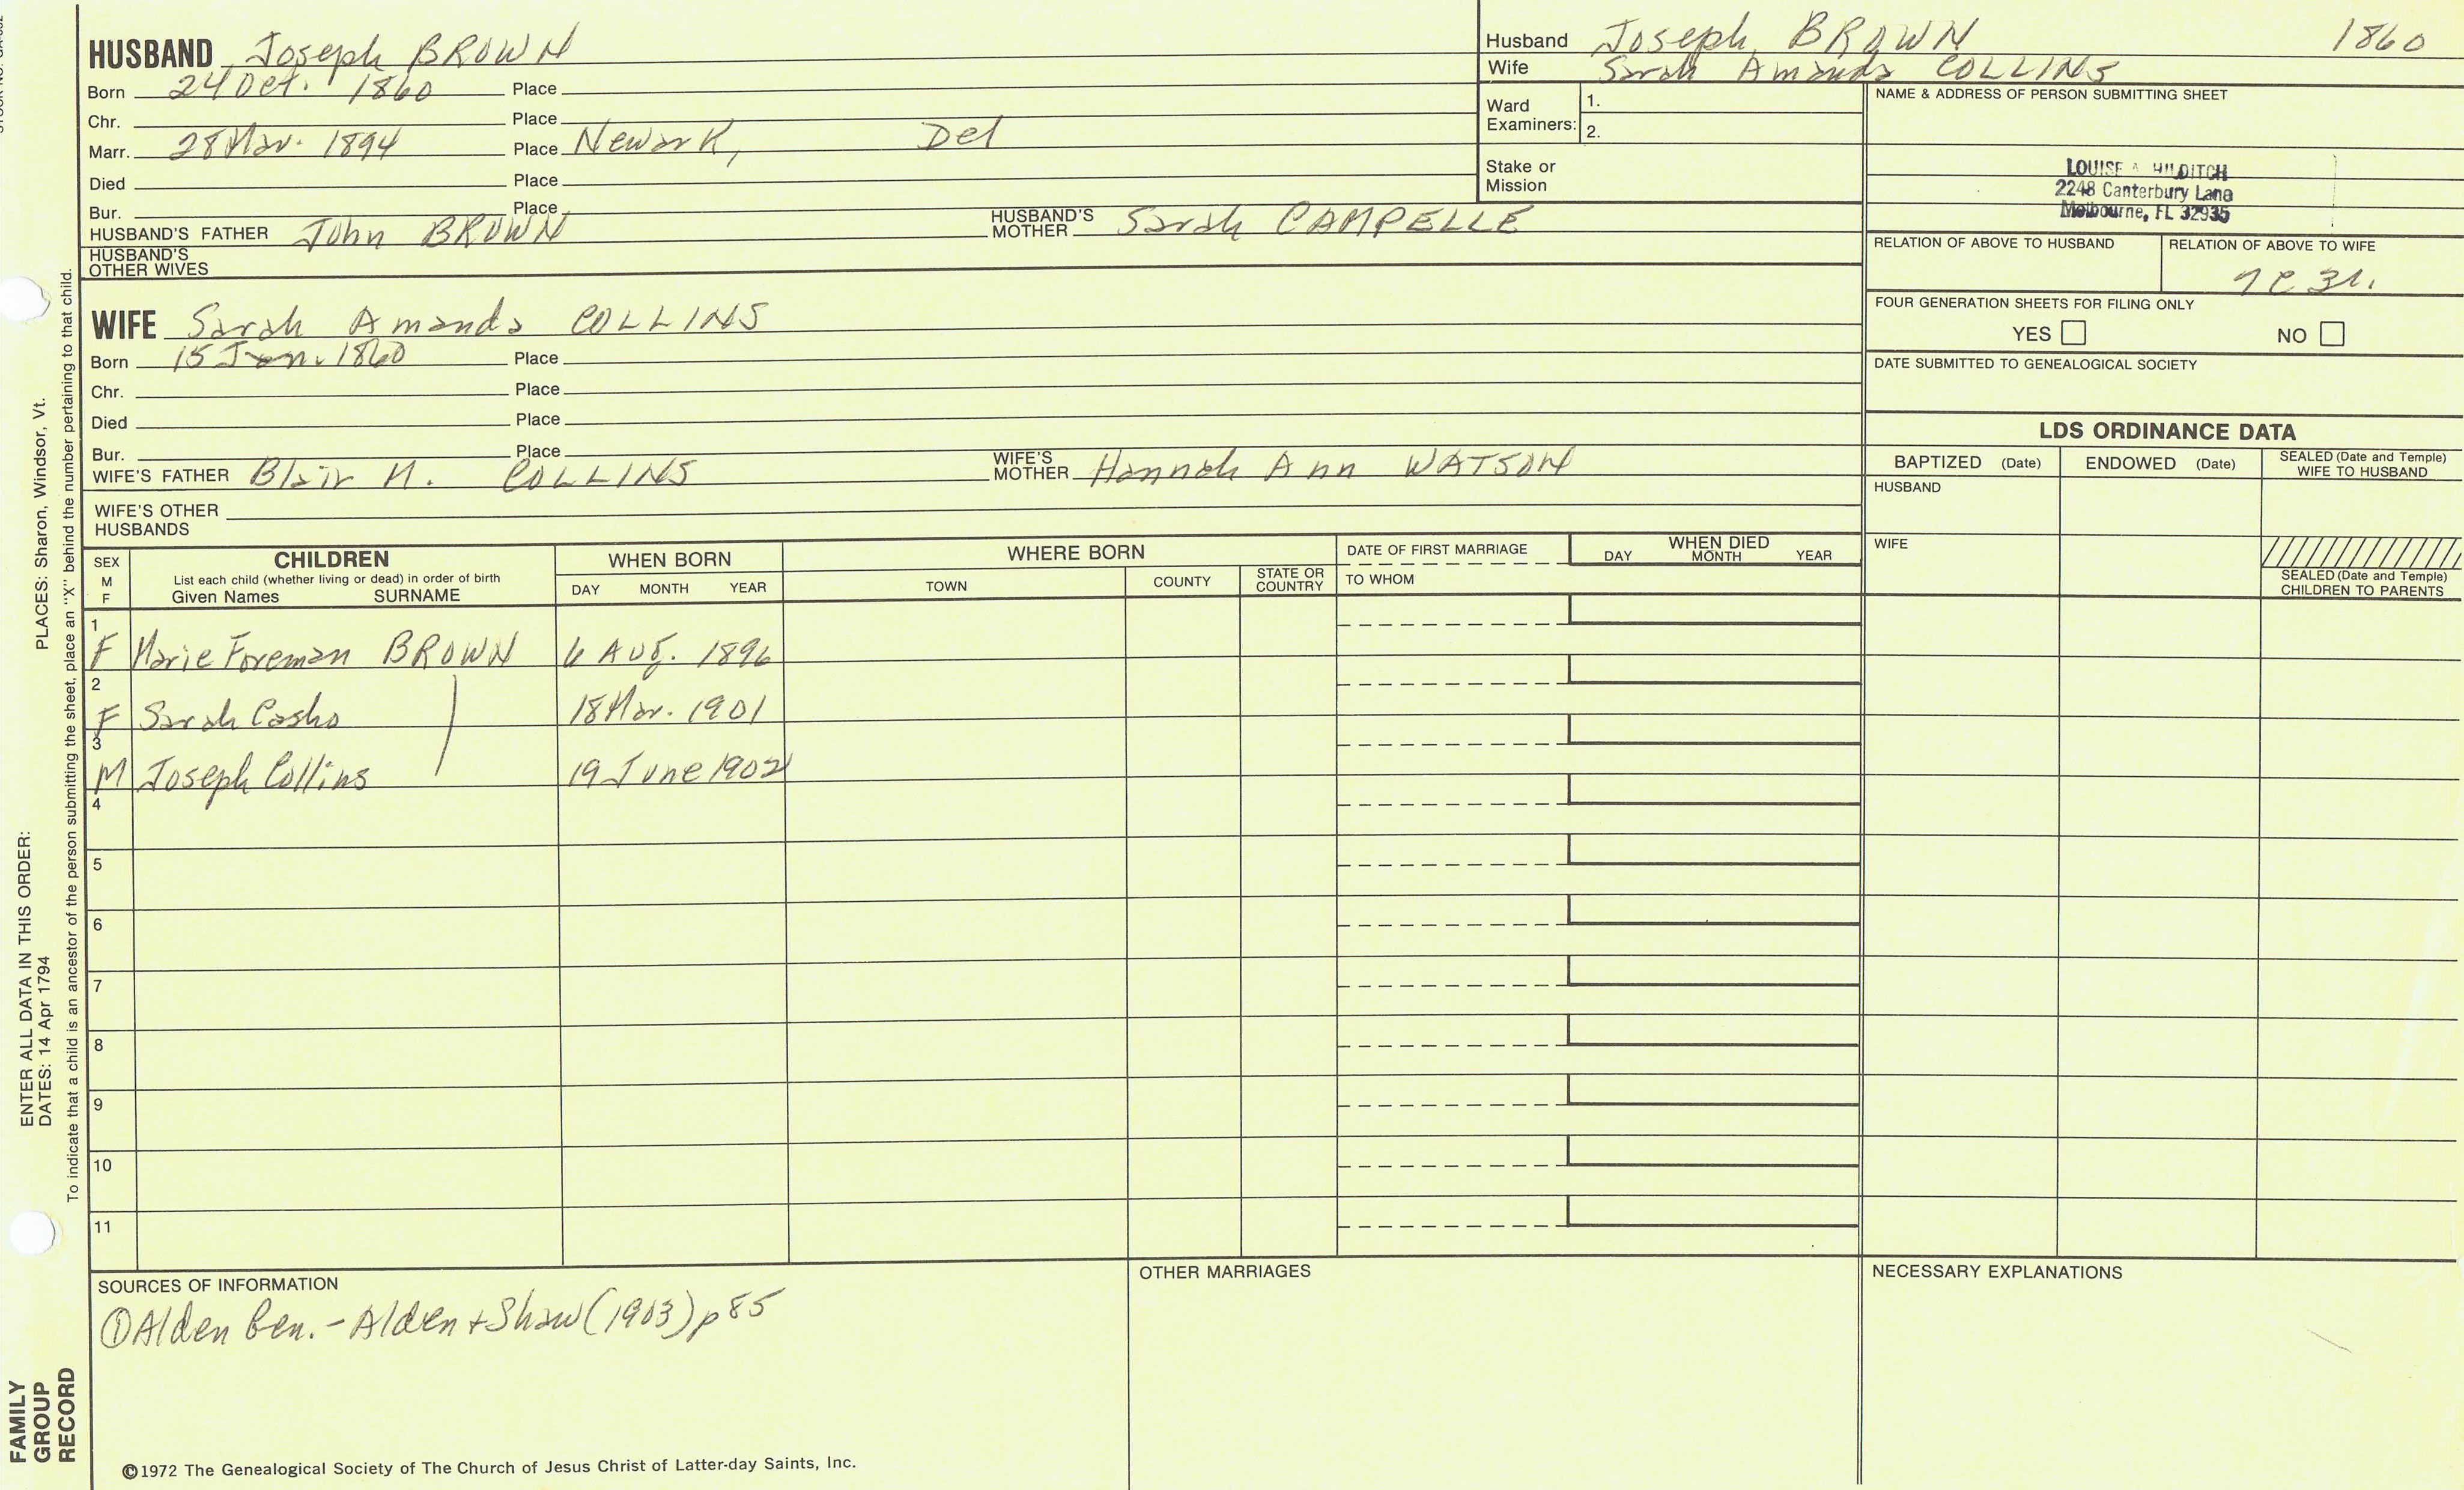 HUSBAND Joseph BROWN
Born 24 Oct. 1860 Place
Chr. Place
Marr. 28 Mar. 1894 Place Newark, Del
Died Place
Bur. Place
HUSBAND'S FATHER John BROWN HUSBAND'S MOTHER Sarah CAMPELLE
HUSBAND'S OTHER WIVES
Husband Joseph BROWN 1860
Wife Sarah Amanda COLLINS
Ward Examiners: 1.
2.
Stake or Mission
NAME & ADDRESS OF PERSON SUBMITTING SHEET
LOUISE A HILDITCH
2248 Canterbury Lane
Melbourne, FL 32935
RELATION OF ABOVE TO HUSBAND RELATION OF ABOVE TO WIFE
FOUR GENERATION SHEETS FOR FILING ONLY
YES NO
DATE SUBMITTED TO GENEALOGICAL SOCIETY
WIFE Sarah Amanda COLLINS
Born 15 Jan. 1860 Place
Chr. Place
Died Place
Bur. Place
WIFE'S FATHER Blair H. COLLINS WIFE'S MOTHER Hannah Ann WATSON
WIFE'S OTHER HUSBANDS
LDS ORDINANCE DATA
BAPTIZED (Date) ENDOWED (Date) SEALED (Date and Temple) WIFE TO HUSBAND
HUSBAND
WIFE
SEALED (Date and Temple) CHILDREN TO PARENTS
SEX M F
CHILDREN
List each child (whether living or dead) in order of birth
Given Names SURNAME
WHEN BORN
DAY MONTH YEAR
WHERE BORN
TOWN COUNTY STATE OR COUNTRY
DATE OF FIRST MARRIAGE
TO WHOM
WHEN DIED
DAY MONTH YEAR
1
F Marie Foreman BROWN 6 Aug. 1896
2
F Sarah Casho 18 Mar. 1901
3
M Joseph Collins 19 June 1902
4
5
6
7
8
9
10
11
SOURCES OF INFORMATION
① Alden Gen. - Alden + Shaw (1903) p 85
OTHER MARRIAGES
NECESSARY EXPLANATIONS
©1972 The Genealogical Society of The Church of Jesus Christ of Latter-day Saints, Inc.
FAMILY
GROUP
RECORD
ENTER ALL DATA IN THIS ORDER:
DATES: 14 Apr 1794 PLACES: Sharon, Windsor, Vt.
To indicate that a child is an ancestor of the person submitting the sheet, place an "X" behind the number pertaining to that child.